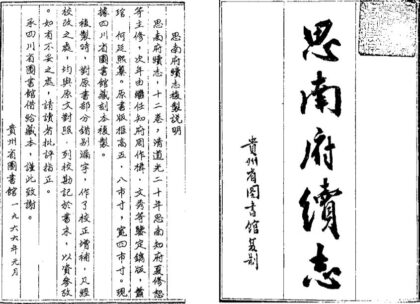 思南府續志
貴州省图书館复制
思南府續志複製說明
思南府續志，十二卷，清道光二十年思南知府夏修恕
等主修，次年由繼任知府周作楫、文秀等鑒定鐫版，蕭
琯、何廷熙纂。原書版框高五．八市寸，寬四市寸。現
據四川省圖書館藏刻本複製。
複製時，對原書部分錯别漏字，作了校正增補，又經
校改之處，均與原文對照，列校勘記於書末，以資參攷
。如有不妥之處，請讀者批評指正。
承四川省圖書館借給藏本，謹此致謝。
貴州省圖書館 一九六六年元月